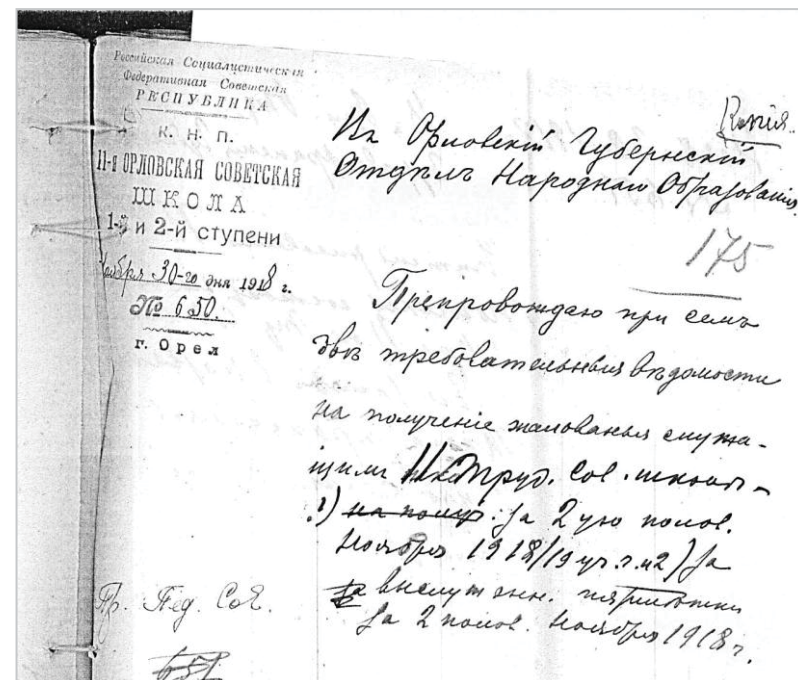 Российская Социалистическая
Федеративная Советская
РЕСПУБЛИКА
К. Н. П.
11-я ОРЛОВСКАЯ СОВЕТСКАЯ
ШКОЛА
1-й и 2-й ступени
Ноября 30-го дня 1918 г.
№ 650.
г. Орел
Въ Орловскій Губернскій
Отдѣлъ Народнаго Образованія.
175
Препровождаю при семъ
двѣ требовательныя вѣдомости
на полученіе жалованья служа-
щими Труд. Сов. школы
1) за 2ую полов.
Ноября 1918/19 уч. г. и 2) за
выслуженн. пятилѣтки
за 2 полов. Ноября 1918 г.
Пр. Пед. Сов.
651